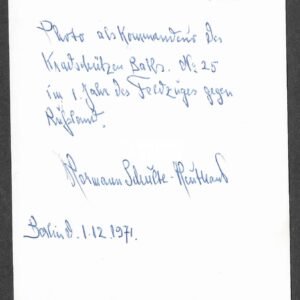 Photo als Kommandeur des
Kradschützen Batls. No 25
im 1. Jahr des Feldzuges gegen
Rußland.
Hermann Schulte-Heuthaus
Berlin d. 1.12.1971.